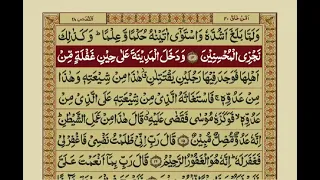 امّن خلق ٢٠
القصص ٢٨
وَلَمَّا بَلَغَ اَشُدَّهٗ وَاسْتَوٰۤى اٰتَيْنٰهُ حُكْمًا وَّعِلْمًا ؕ وَكَذٰلِكَ
نَجْزِى الْمُحْسِنِيْنَ ﴿١٤﴾ وَدَخَلَ الْمَدِيْنَةَ عَلٰى حِيْنِ غَفْلَةٍ مِّنْ
اَهْلِهَا فَوَجَدَ فِيْهَا رَجُلَيْنِ يَقْتَتِلٰنِ ؗ هٰذَا مِنْ شِيْعَتِهٖ وَهٰذَا
مِنْ عَدُوِّهٖ ۚ فَاسْتَغَاثَهُ الَّذِىْ مِنْ شِيْعَتِهٖ عَلَى الَّذِىْ مِنْ
عَدُوِّهٖ ۙ فَوَكَزَهٗ مُوْسٰى فَقَضٰى عَلَيْهِ ؗ قَالَ هٰذَا مِنْ عَمَلِ الشَّيْطٰنِ ؕ
اِنَّهٗ عَدُوٌّ مُّضِلٌّ مُّبِيْنٌ ﴿١٥﴾ قَالَ رَبِّ اِنِّىْ ظَلَمْتُ نَفْسِىْ فَاغْفِرْ لِىْ
فَغَفَرَ لَهٗ ؕ اِنَّهٗ هُوَ الْغَفُوْرُ الرَّحِيْمُ ﴿١٦﴾ قَالَ رَبِّ بِمَاۤ اَنْعَمْتَ عَلَىَّ